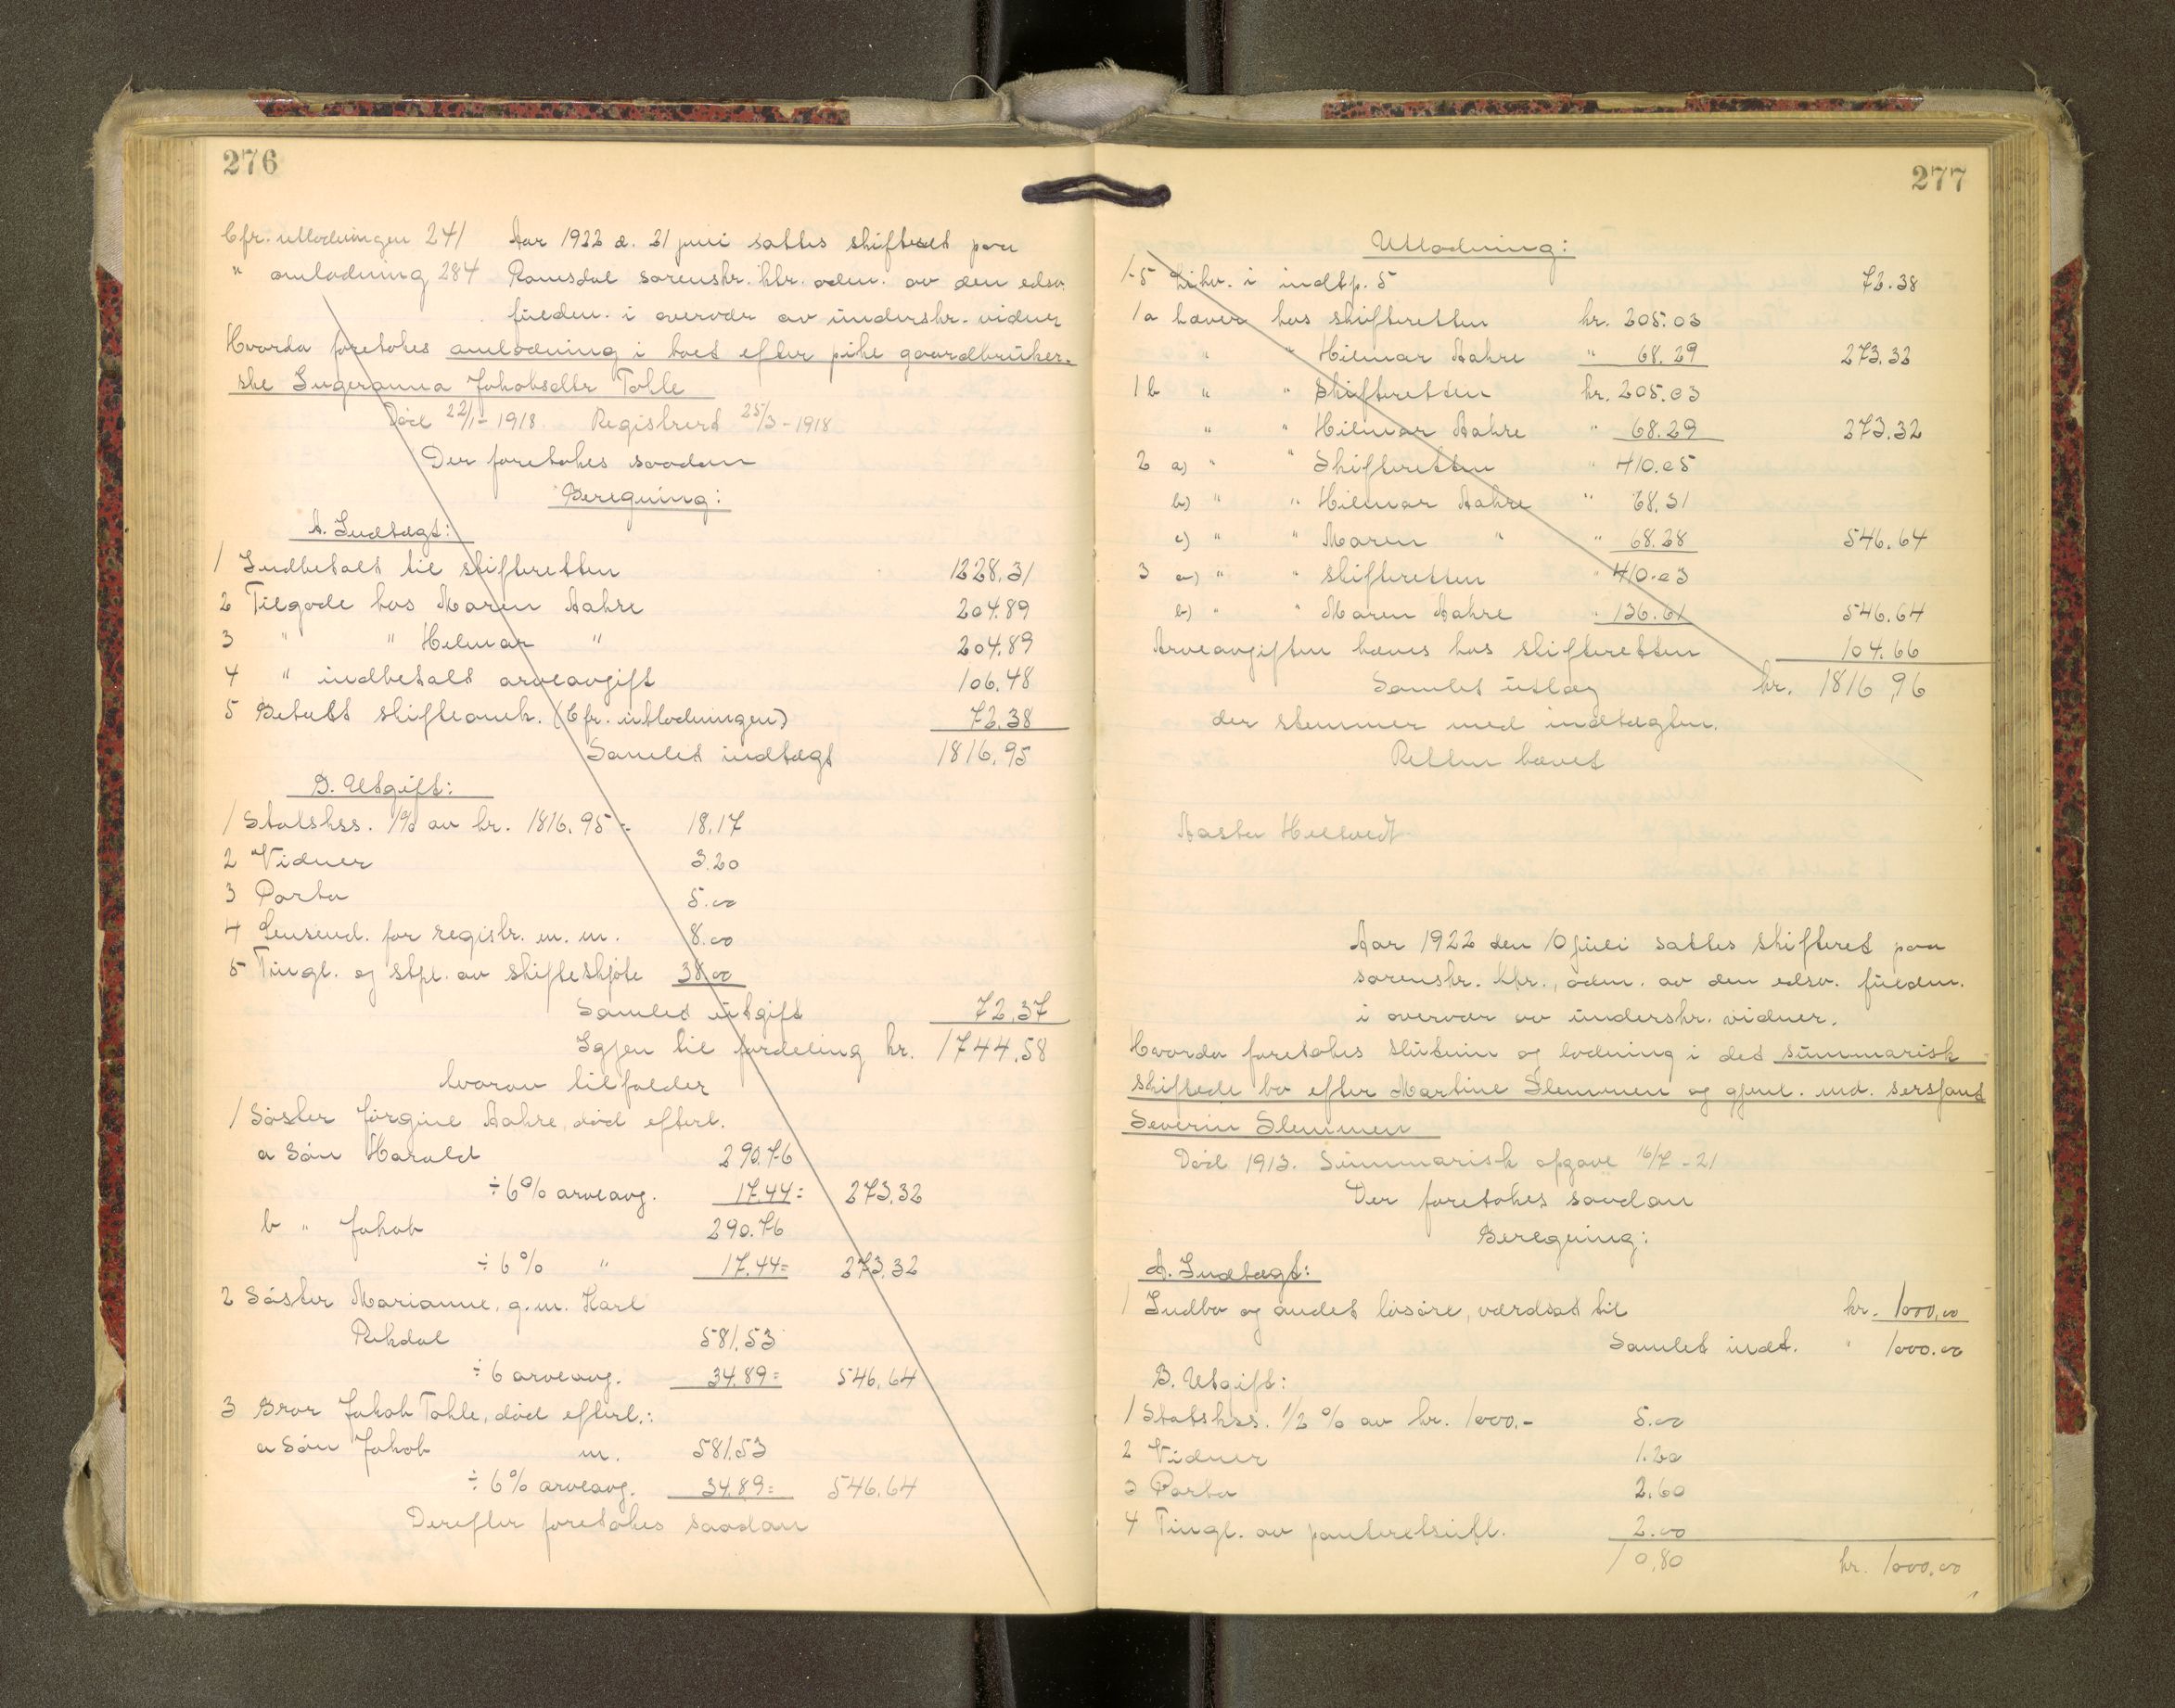 276
Cfr. utlodningen 241 Aar 1922 d. 21 juni sattes skifteret paa
" omlodning 284 Romsdal sorenskr. ktr. adm. av den edsv.
fuldm. i overvær av underskr. vidner
Hvorda foretokes omlodning i boet efter pike gaardbruker-
ske Ingeranna Jakobsdtr Tokle
Död 22/1 - 1918. Registrert 25/3 - 1918
Der foretokes saadan
Beregning:
A. Indtægt:
1 Indbetalt til skifteretten 1228.31
2 Tilgode hos Maren Aakre 204.89
3 " " Hilmar " 204.89
4 " indbetalt arveavgift 106.48
5 Betalt skifteomk. (Cfr. utlodningen) 72.38
Samlet indtægt 1816.95
B. Utgift:
1 Statskss. 1% av kr. 1816.95 = 18.17
2 Vidner 3.20
3 Porto 5.00
4 Lensmd. for registr. m. m. 8.00
5 Tingl. og stpl. av skifteskjöte 38.00
Samlet utgift 72.37
Igjen til fordeling kr. 1744.58
hvorav tilfalder
1 Söster Jörgine Aakre, död efterl.
a Sön Harald 290.76
÷ 6% arveavg. 17.44 = 273.32
b " Jakob 290.76
÷ 6% " 17.44 = 273.32
2 Söster Marianne, g. m. Karl
Rekdal 581.53
÷ 6 arveavg. 34.89 = 546.64
3 Bror Jakob Tokle, död efterl.:
a Sön Jakob m. 581.53
÷ 6% arveavg. 34.89 = 546.64
Derefter foretokes saadan
277
Utlodning:
1-5 Likv. i indtp. 5 72.38
1a hæver hos skifteretten kr. 205.03
" " Hilmar Aakre " 68.29 273.32
1b " " Skifteretten kr. 205.03
" " Hilmar Aakre " 68.29 273.32
2 a) " " Skifteretten " 410.05
b) " " Hilmar Aakre " 68.31
c) " " Maren " " 68.28 546.64
3 a) " " skifteretten " 410.03
b) " " Maren Aakre " 136.61 546.64
Arveavgiften hæves hos skifteretten 104.66
Samlet utlæg kr. 1816,96
der stemmer med indtægten.
Retten hævet
Aasta Hellvedt
Aar 1922 den 10 juli sattes skifteret paa
sorenskr. ktr., adm. av den edsv. fuldm.
i overvær av underskr. vidner.
Hvorda foretokes slutnin og lodning i det summarisk
skiftede bo efter Martine Slemmen og gjenl. md. sersjant
Severin Slemmen
Död 1913. Summarisk opgave 16/7 - 21
Der foretokes saadan
Beregning:
A. Indtægt:
1 Indbo og andet lösöre, værdsat til kr. 1000,00
Samlet indt. " 1000.00
B. Utgift:
1 Statskss. 1/2 % av kr. 1000.- 5.00
2 Vidner 1.20
3 Porto 2.60
4 Tingl. av panteretsutl. 2.00
10,80 kr. 1000,00